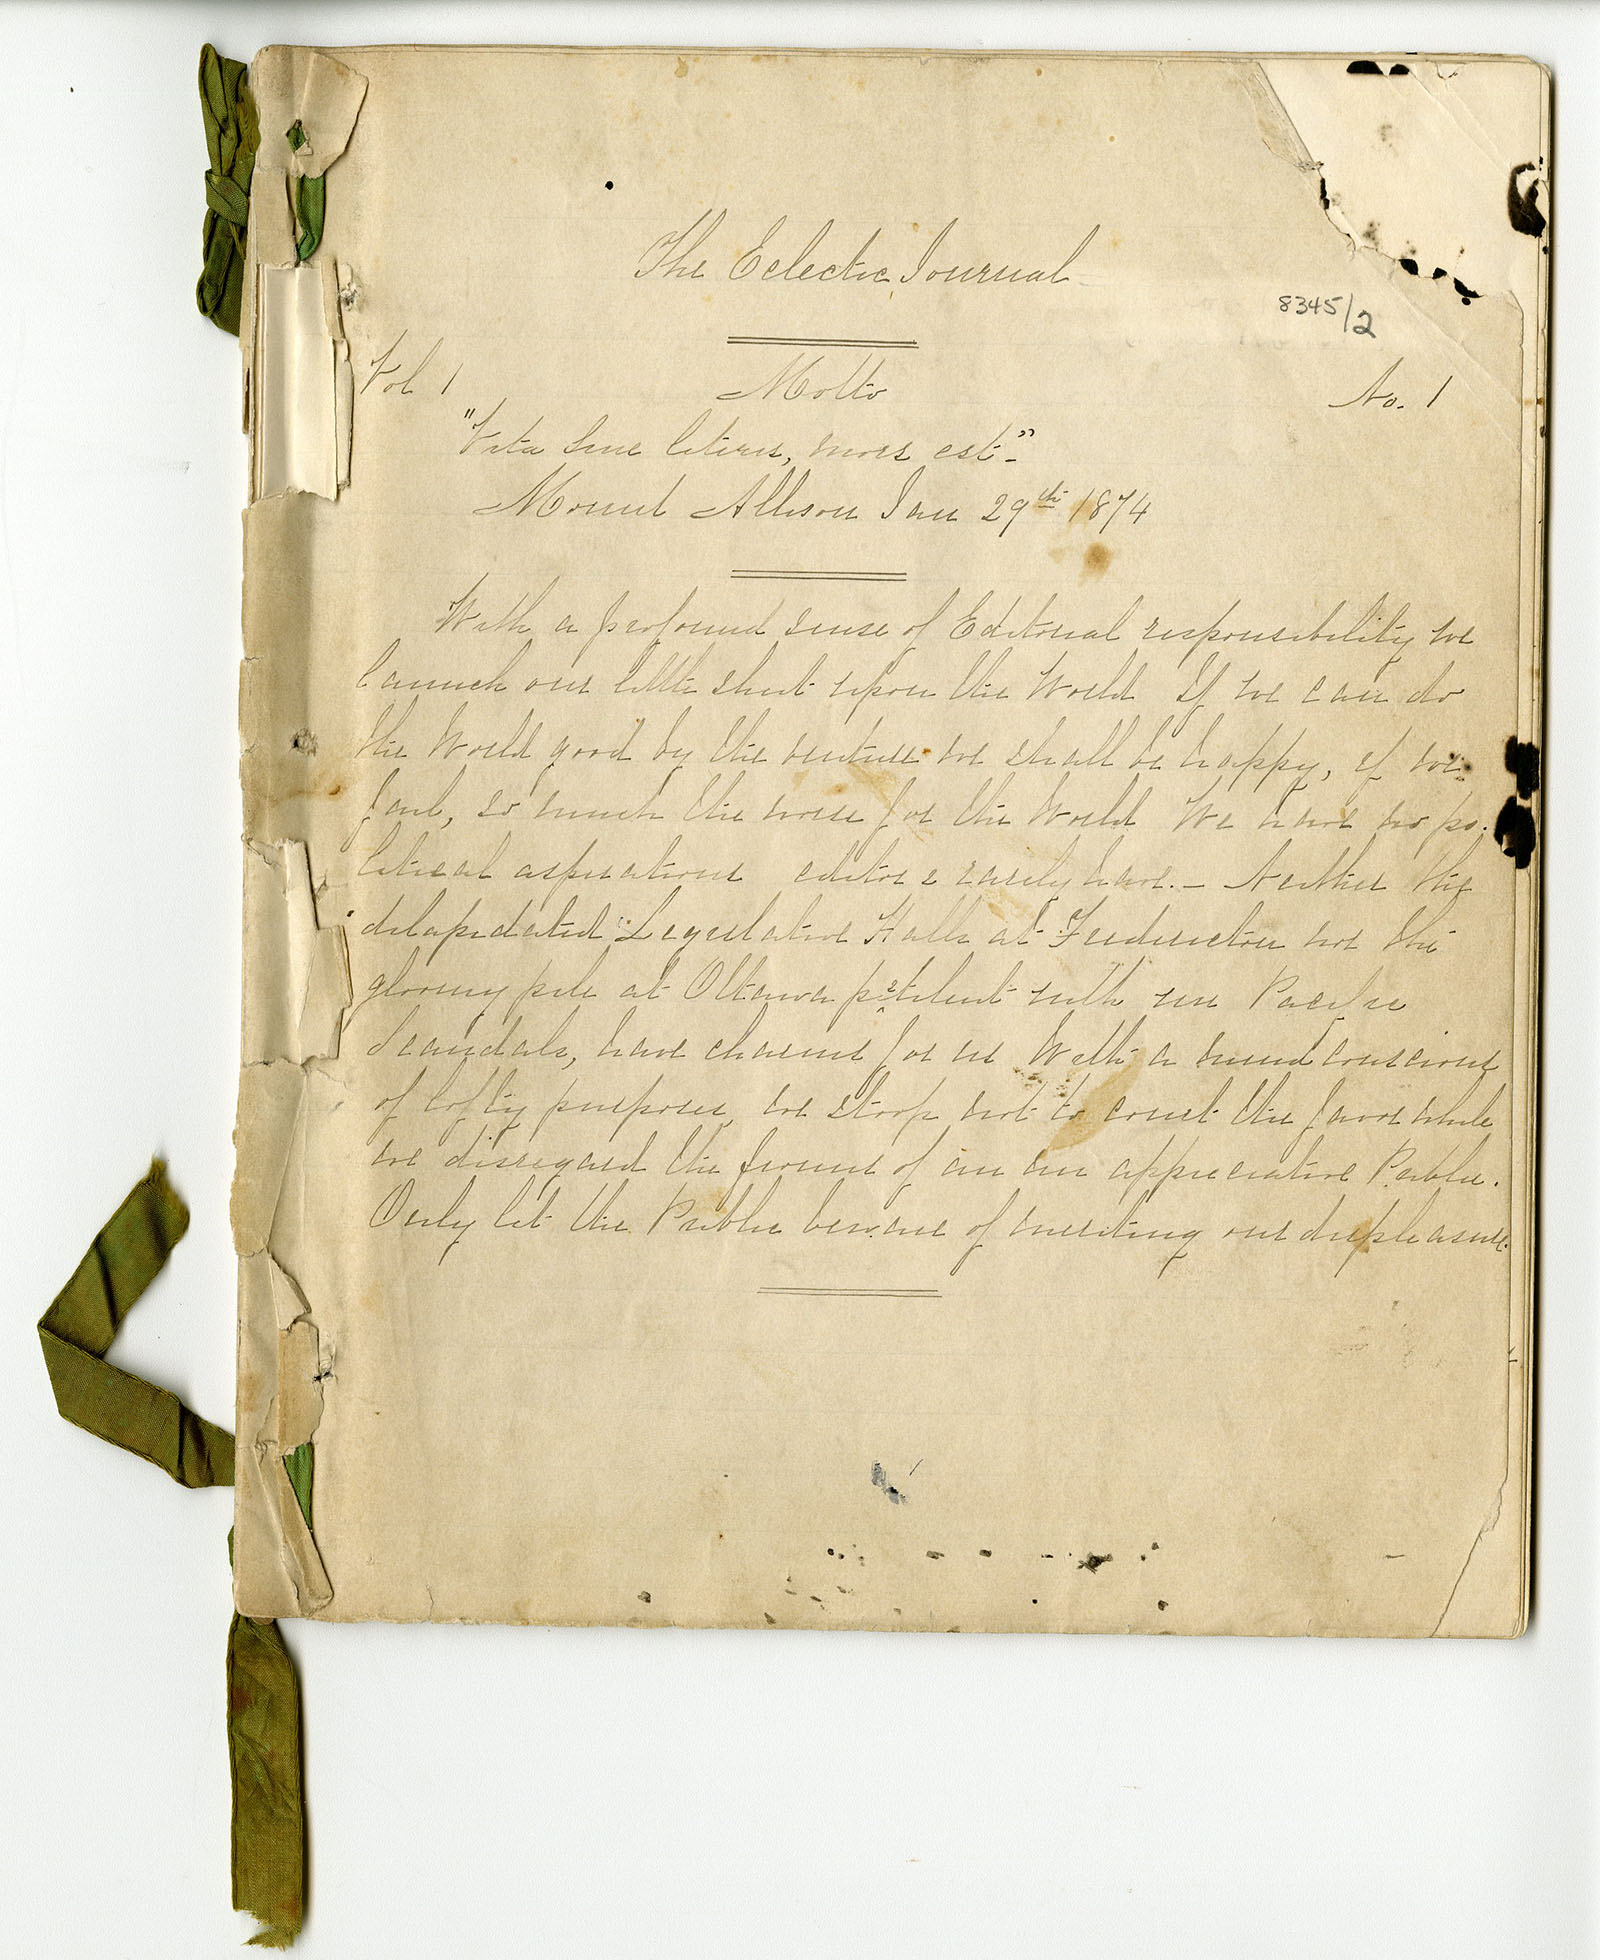 The Eclectic Journal
8345/2
Vol 1 Motto No. 1
"Vita Sine literis, mors est."
Mount Allison Jan 29th 1874
With a profound sense of Editorial responsibility we
launch our little sheet upon the World If we can do
the World good by the venture we shall be happy, if we
fail, so much the worse for the World We have no po-
litical aspirations editors rarely have. - Neither the
dilapidated Legislative Halls at Fredericton nor the
gloomy pile at Ottawa pestilent with Pacific
Scandals, have charms for us With a mind conscious
of lofty purposes, we stoop not to court the favor while
we disregard the frowns of an un appreciative Public.
Only let the Public beware of meriting our displeasure.